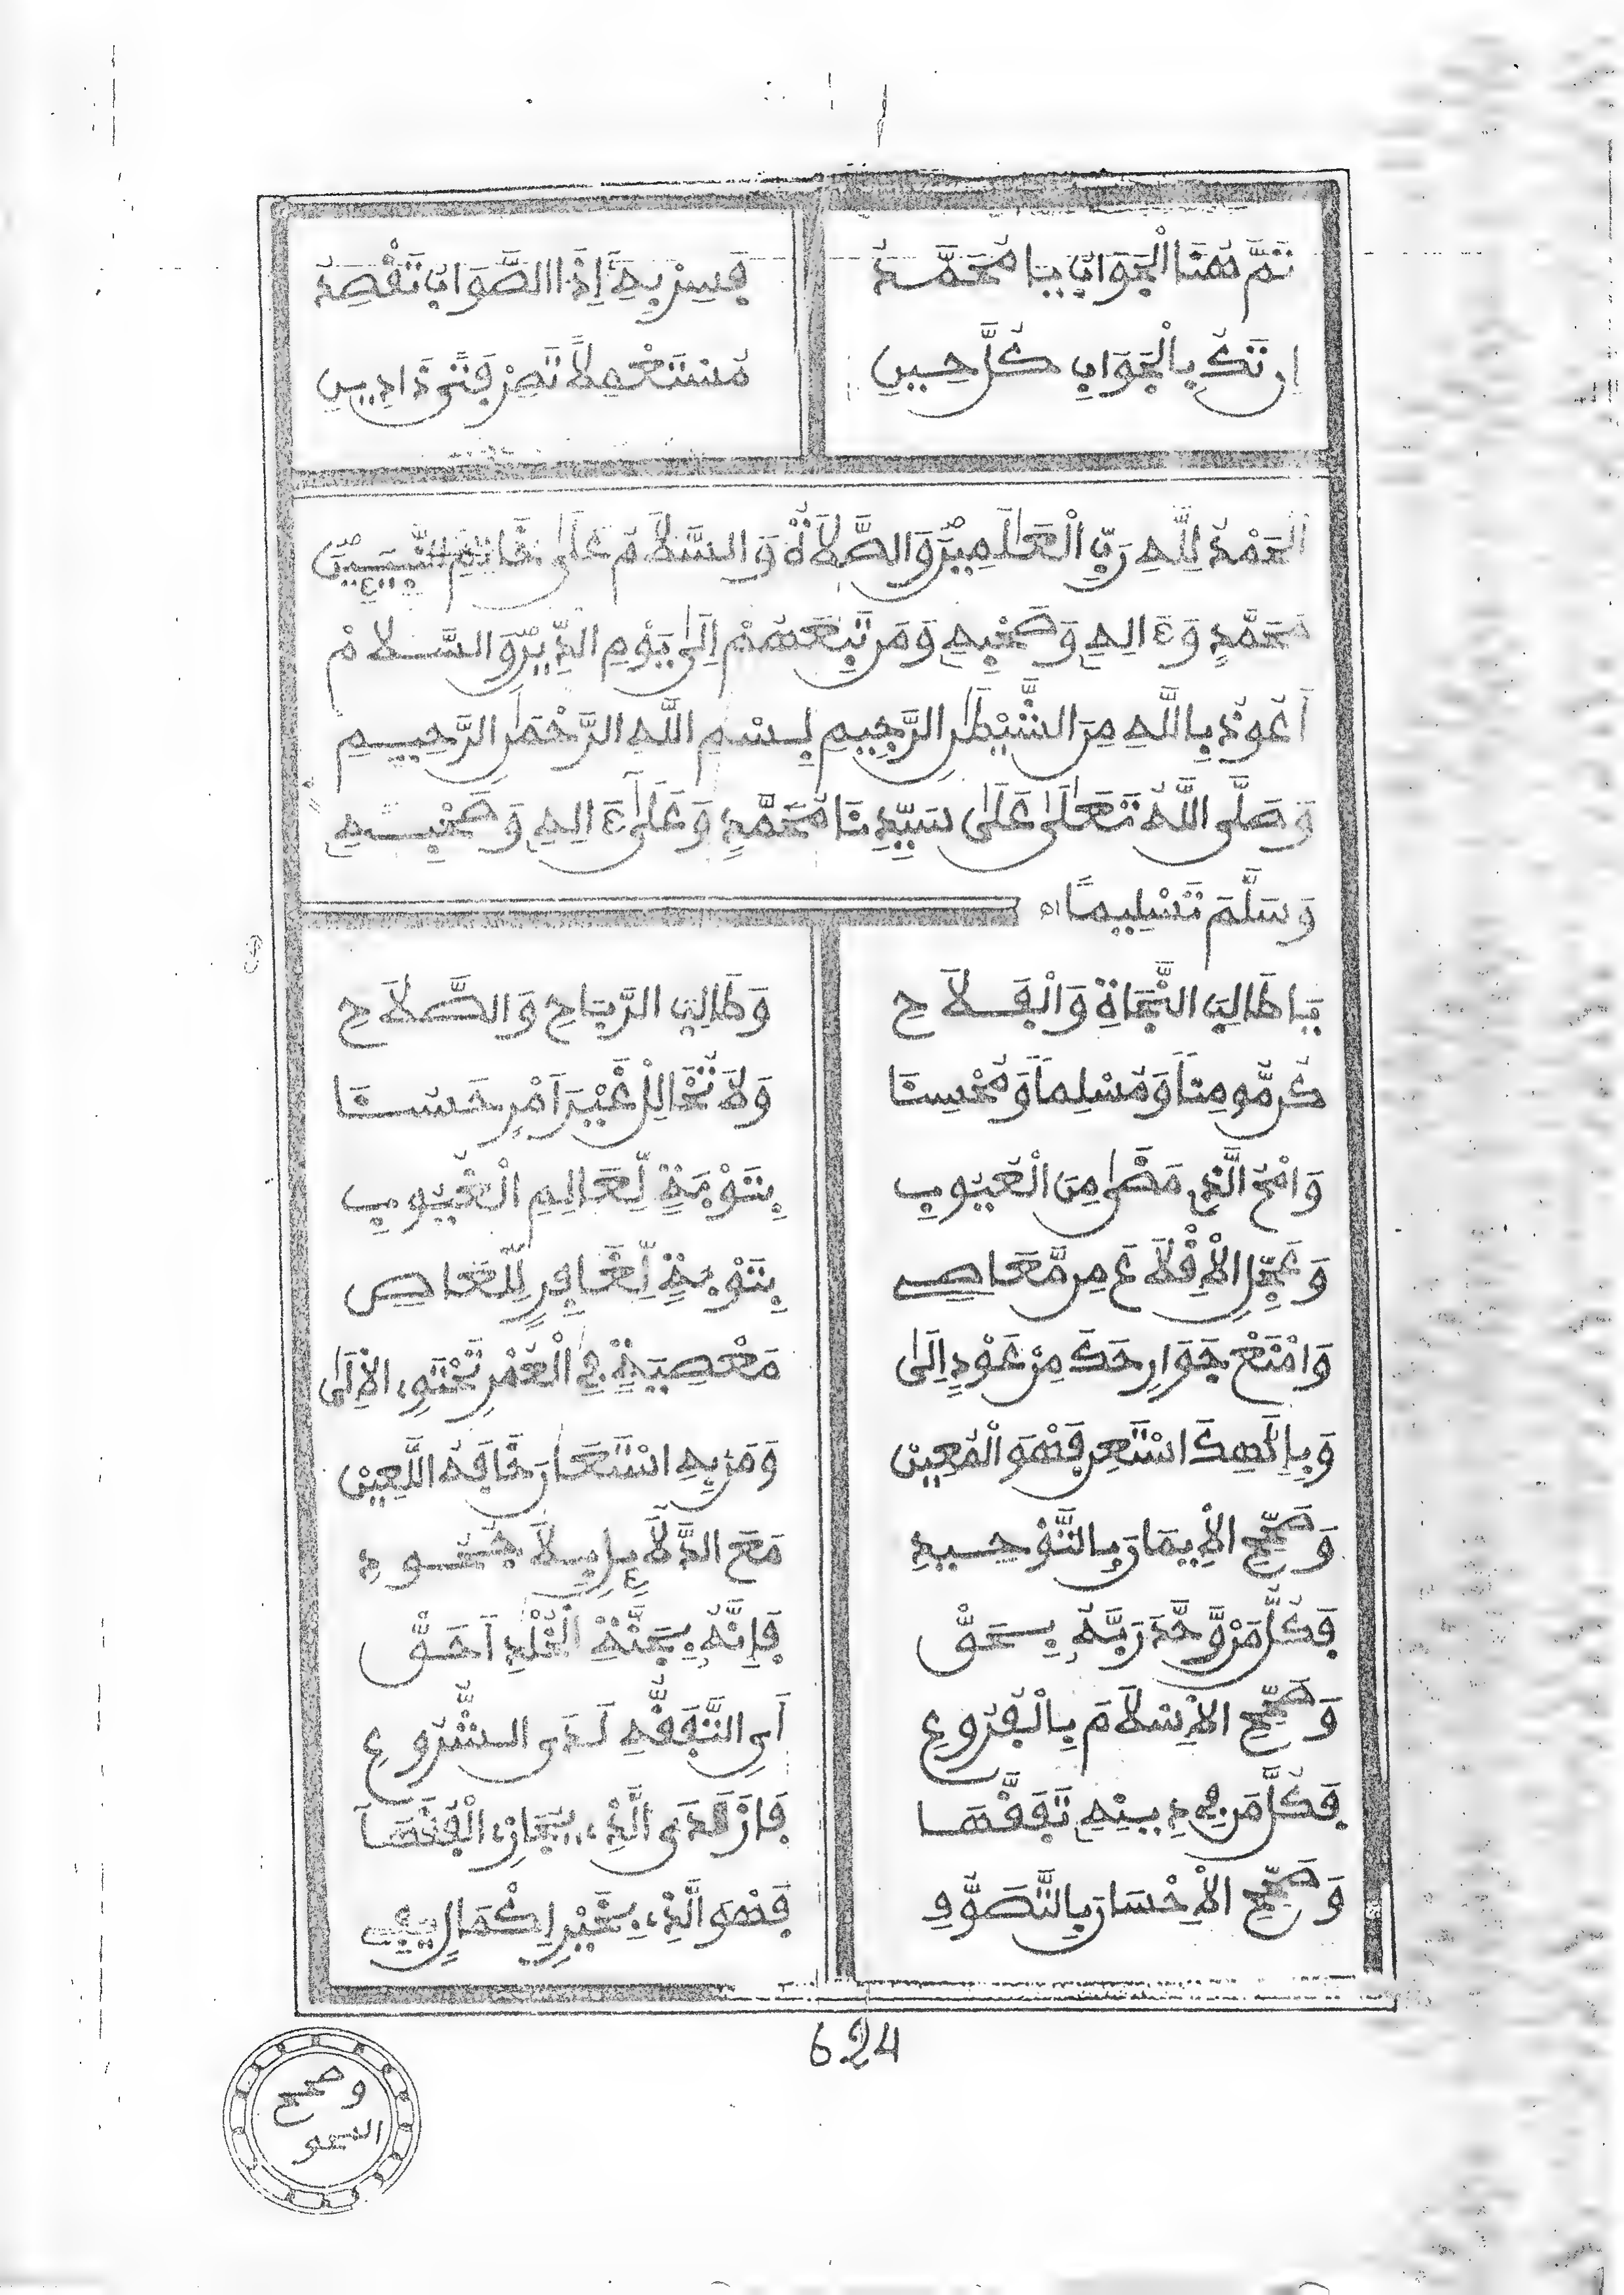 تَمَّ هُنَا الْجَوَابُ يَا مُحَمَّدُ فَسِرْ بِهِ إِذَا الصَّوَابَ تَقْصِدُ
إِن تَكُ بِالْجَوَابِ كُلَّ حِينِ مُسْتَعْمِلاً تَصِرْ فَتىً ذَا دِينِ
اَلْحَمْدُ لِلَّهِ رَبِّ الْعَالَمِينَ وَالصَّلاَةُ وَالسَّلاَمُ عَلَى خَاتِمِ النَّبِيئِينَ
مُحَمَّدٍ وَءَالِهِ وَصَحْبِهِ وَمَن تَبِعَهُمْ إِلَى يَوْمِ الدِّينِ وَالسَّلاَمْ
أَعُوذُ بِاللَّهِ مِنَ الشَّيْطَانِ الرَّجِيمِ بِسْمِ اللَّهِ الرَّحْمَنِ الرَّحِيمِ
وَصَلَّى اللَّهُ تَعَالَى عَلَى سَيِّدِنَا مُحَمَّدٍ وَعَلَى ءَالِهِ وَصَحْبِهِ
وَسَلَّمَ تَسْلِيمًا اه
يَا طَالِبَ النَّجَاةِ وَالْفَلاَحِ وَطَالِبَ الرَّبَاحِ وَالصَّلاَحِ
كُن مُّومِناً وَمُسْلِماً وَمُحْسِنَا وَلاَ تُخَالِلْ غَيْرَ أَمْرٍ حَسُنَا
وَامْحُ الَّذِي مَضَى مِنَ الْعُيُوبِ بِتَوْبَةٍ لِّعَالِمِ الْغُيُوبِ
وَعَجِّلِ الْإِقْلَاعَ مِن مَّعَاصِ بِتَوْبَةٍ لِّغَافِرٍ لِّلْعَاصِ
وَامْنَعْ جَوَارِحَكَ مِنْ عَوْدٍ إِلَى مَعْصِيَةٍ فِي الْعُمْرِ تَحْتَوِي الْإِلَى
وَبِإِلَهِكَ اسْتَعِن فَهْوَ الْمُعِينْ وَمَن بِهِ اسْتَعَانَ خَافَهُ اللَّعِينْ
وَصَحِّحِ الْإِيمَانَ بِالتَّوْحِيدِ مَعَ الدَّلاَئِلِ بِلاَ جُحُودِ
فَكُلُّ مَن وَّحَّدَ رَبَّهُ بِحَقْ فَإِنَّهُ بِجَنَّةِ الْخُلْدِ أَحَقْ
وَصَحِّحِ الْإِسْلاَمَ بِالْفُرُوعِ أَيِ التَّفَقُّهِ لَدَى الشُّرُوعِ
فَكُلُّ مَن فِي دِينِهِ تَفَقَّهَا فَازَ لَدَى الَّذِي يُجَازِي الْفُقَهَا
وَصَحِّحِ الْإِحْسَانَ بِالتَّصَوُّفِ فَهْوَ الَّذِي بِخَيْرِ إِكْمَالٍ يَفِي
624
وصحح